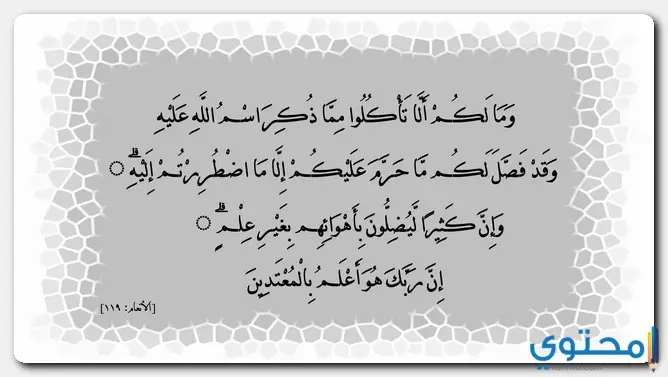 وَمَا لَكُمْ أَلَّا تَأْكُلُوا مِمَّا ذُكِرَ اسْمُ اللَّهِ عَلَيْهِ
وَقَدْ فَصَّلَ لَكُم مَّا حَرَّمَ عَلَيْكُمْ إِلَّا مَا اضْطُرِرْتُمْ إِلَيْهِ ۗ
وَإِنَّ كَثِيرًا لَّيُضِلُّونَ بِأَهْوَائِهِم بِغَيْرِ عِلْمٍ ۗ
إِنَّ رَبَّكَ هُوَ أَعْلَمُ بِالْمُعْتَدِينَ
[الأنعام: ١١٩]
محتوي